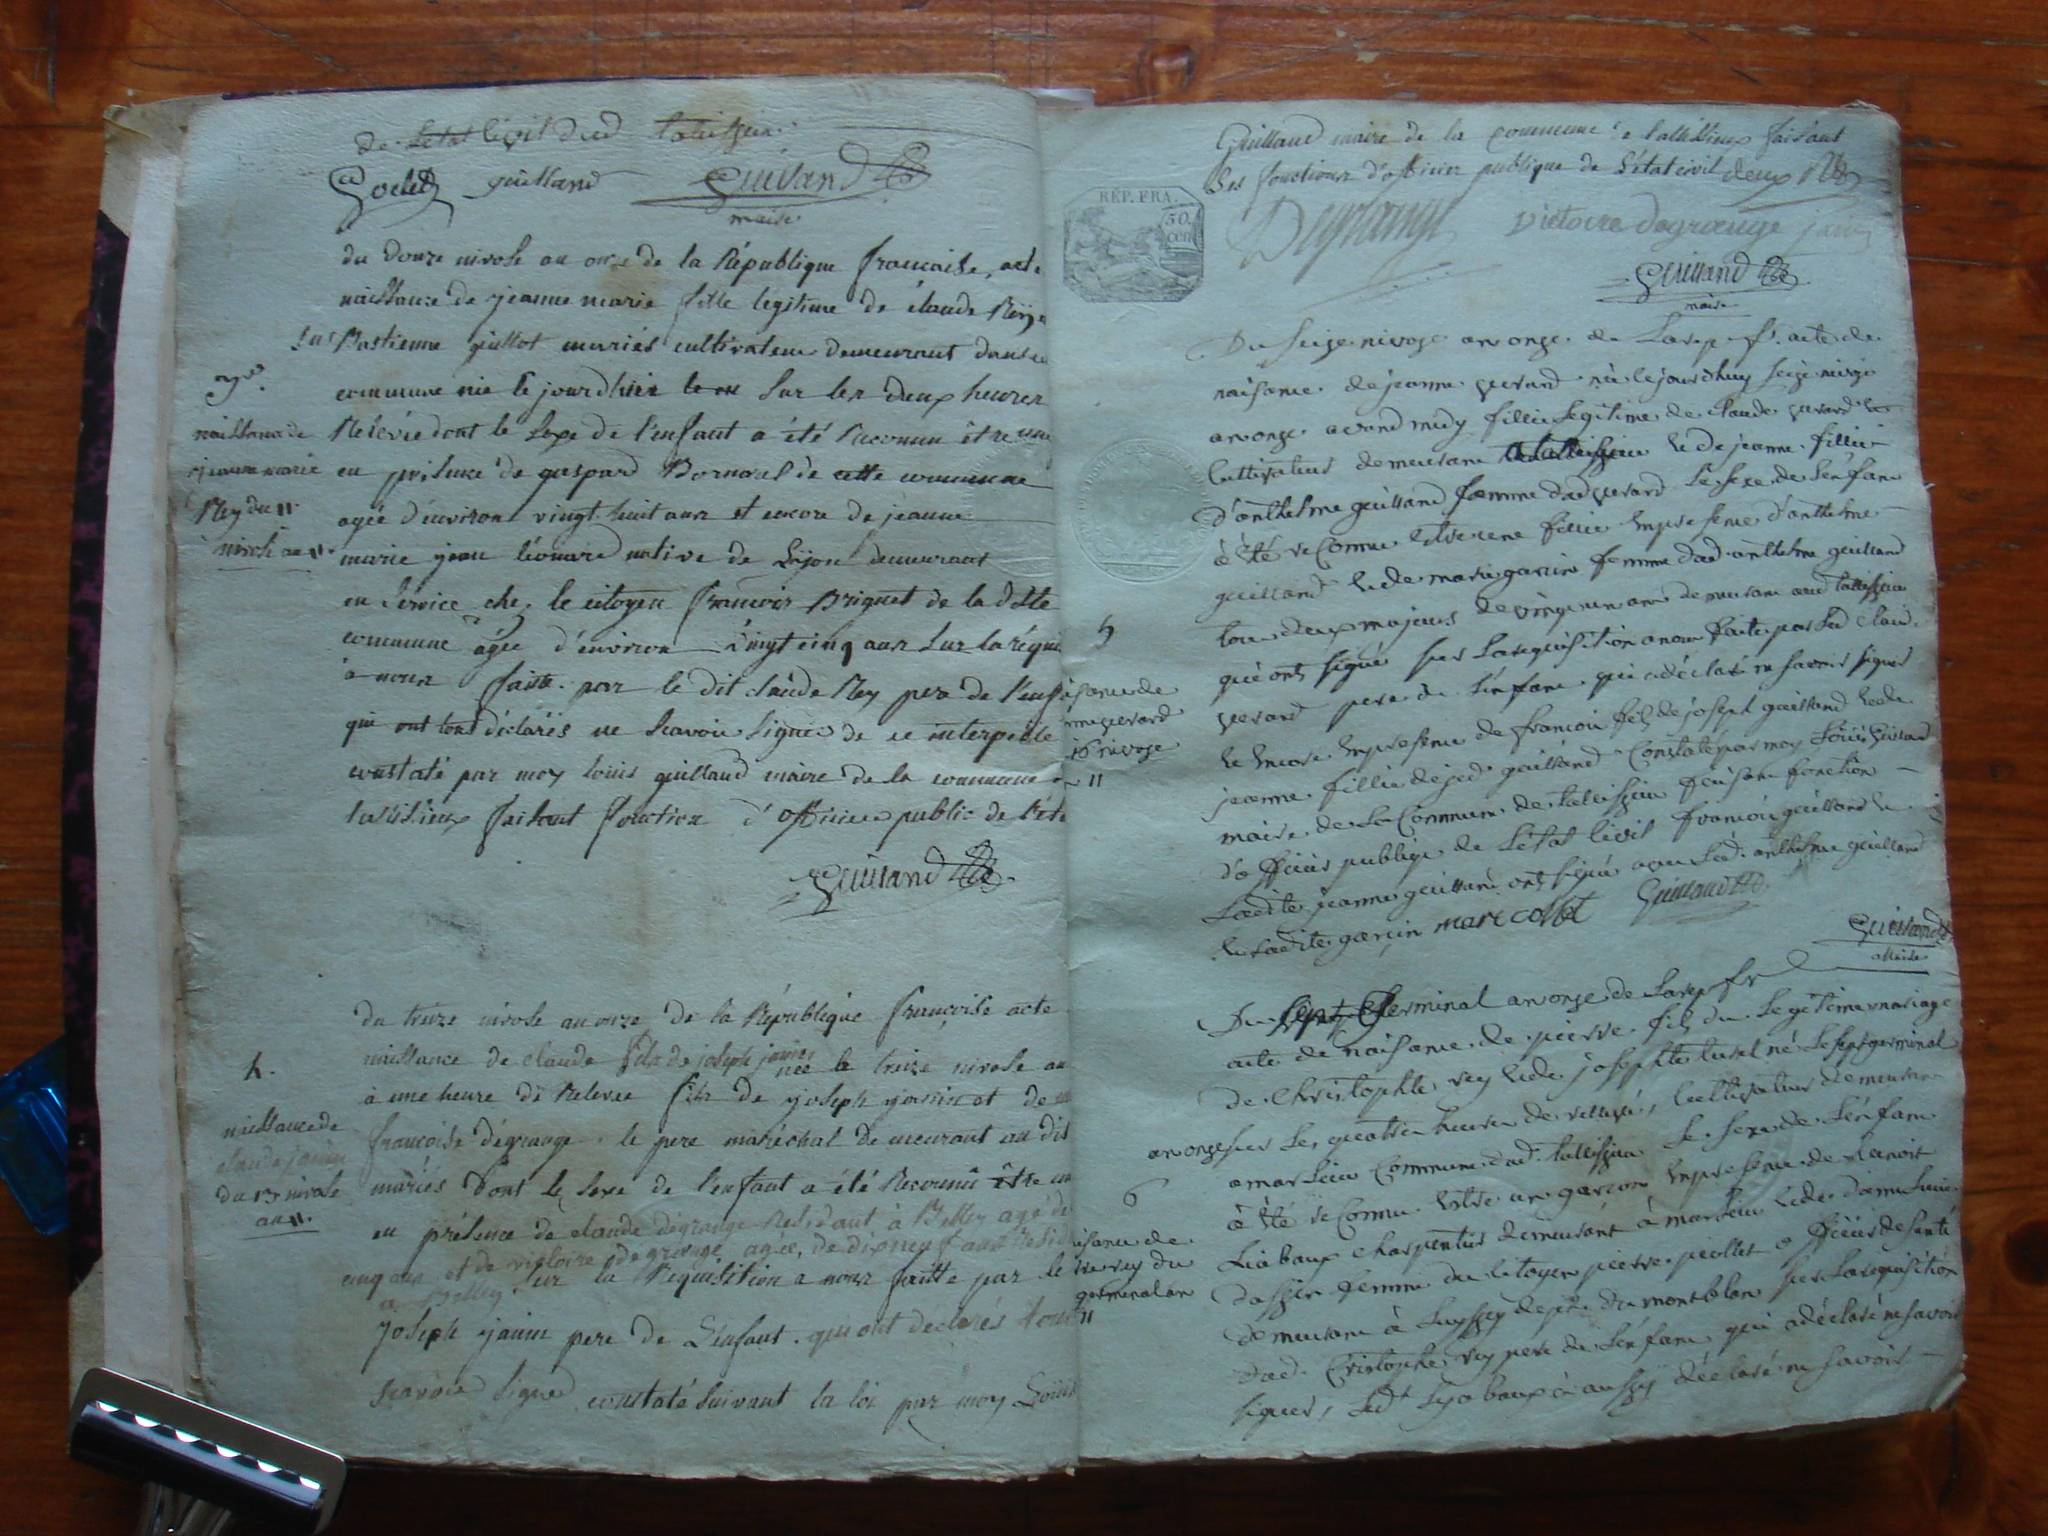 de Letat civil dud talissieu
Godet guilland Guilland
maire
du douze nivose an onze de la République francaise, acte
naissance de jeanne marie fille legitime de claude Rey
Bastienne guillot mariés cultivateur demeurant dans
commune née le jourdhier sur les deux heures
Relevée dont le sexe de l'enfant a été Reconnu être une
en présence de gaspard Bornarel de cette commune
agée d'environ vingt huit ans et encore de jeanne
marie jean léonard native de Lyon demeurant
en service chez le citoyen francois Briguet de la ditte
commune agée d'environ vingt cinq ans sur la réqui
à nous faitte par le dit claude Rey pere de l'enf
qui ont tous déclarés ne scavoir signer de ce interpellé
constaté par moy louis guilland maire de la commune
talissieux faisant fonction d'officier public de l'ét
Guilland
3me
naissance de
jeanne marie
Rey du 11
nivose an 11.
du treize nivose an onze de la République françoise acte
naissance de claude fils de joseph janin née le treize nivose an
à une heure de Relevée fils de joseph janin et de
françoise dégrange le pere maréchal demeurant au dis
mariés dont le sexe de l'enfant a été Reconnu être un
en présence de claude dégrange Résidant à Belley agé de
cinq ans et de victoire degrange agée de dixneuf ans Resid
a Belley sur la Réquisition a nous faitte par le
Joseph janin pere de L'enfant qui ont déclarés
scavoir signer constaté suivant la loi par moy Louis
4.
naissance de
claude janin
du 13 nivose
an 11.
Guilland maire de la commune de tallissieux faisant
les fonctions d'officier publique de l'état civil deux
RÉP. FRA.
50
cen
Degrange victoire degrange janin
Guilland
maire
Du seize nivoze an onze de La rep. fr. acte de
naisance de jeanne guerard née le jourdhuy seize nivoze
an onze avand midy fillie legitime de claude gerard
Cultivateur demeurant a tallissieu & de jeanne fillie
d'anthelme guilland femme dud gerard Le sexe de l'enfant
à été reConnu estre une fillie en presence d'anthelme
guilland & de marie garcin femme dud anthelme guilland
tou deux majeurs de vingt un ans demeurant aud tallissieu
qui ont signé sur La requisition a nous faite par Led Claude
gerard pere de L'enfant qui a déclaré ne savoir signer
& encore en presence de francoi fils de joseph guilland & de
jeanne fillie de jed guilland Constaté par moy Louis guilland
maire de La Commune de tallissieu faisant fonction
d'officier publique de L'etat Civil francoi guilland &
Ladite jeanne guilland ont signé avec Led anthelme guilland
& Ladite garcin marc collet Guilland
Guilland
Maire
5
isance de
16 nivoze
11
Du sept Germinal an onze de La rep fr
acte de naisance de pierre fils du Legitime mariage
de Christophle rey & de josephte tusel né Le sept germinal
an onze sur Les quatre heure de rellevé, Cultivateur demeurant
a marlieu Commune dud tallissieu Le sexe de L'enfant
à été reConnu estre un garcon en presence de Benoit
Liabaux charpentier demeurant à marlieu & de
dassier femme du citoyen pierre piollet officier de santé
demeurant à dept du montblan sur La requisition
dud Cristophe rey pere de L'enfant qui a déclaré ne savoir
signer, Ledt Lyabaux a aussy déclaré ne savoir
6
isance de
rey du
germinal an
11